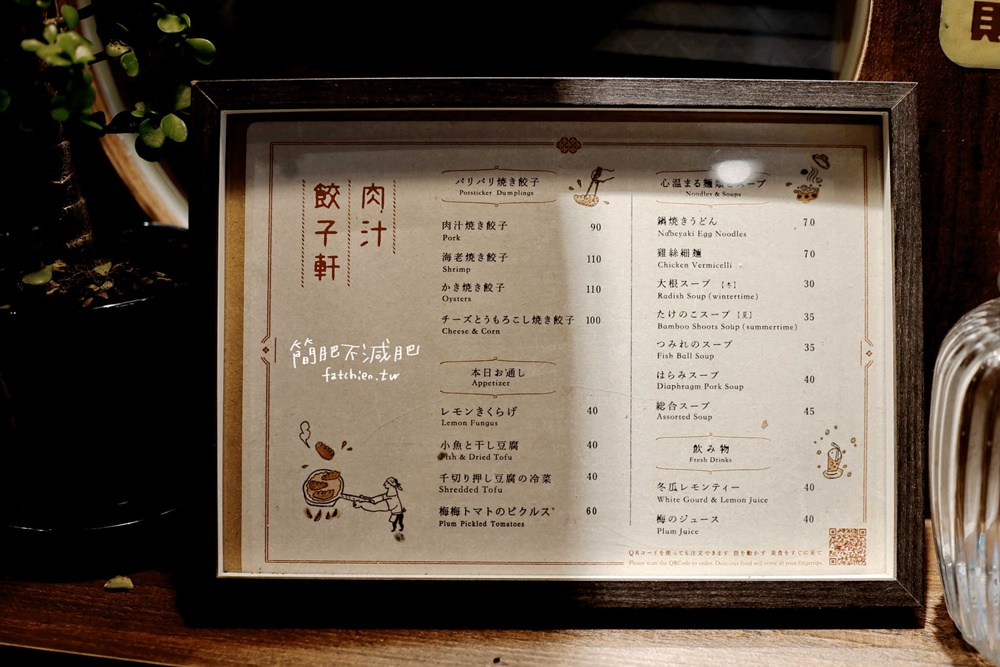 肉汁
餃子軒
簡肥不減肥
fatchien.tw
パリパリ焼き餃子
Potsticker Dumplings
肉汁焼き餃子 90
Pork
海老焼き餃子 110
Shrimp
かき焼き餃子 110
Oysters
チーズとうもろこし焼き餃子 100
Cheese & Corn
本日お通し
Appetizer
レモンきくらげ 40
Lemon Fungus
小魚と干し豆腐 40
Fish & Dried Tofu
千切り押し豆腐の冷菜 40
Shredded Tofu
梅梅トマトのピクルス 60
Plum Pickled Tomatoes
心温まる麺類とスープ
Noodles & Soups
鍋焼きうどん 70
Nabeyaki Egg Noodles
雞絲細麵 70
Chicken Vermicelli
大根スープ【冬】 30
Radish Soup (wintertime)
たけのこスープ【夏】 35
Bamboo Shoots Soup (summertime)
つみれのスープ 35
Fish Ball Soup
はらみスープ 40
Diaphragm Pork Soup
総合スープ 45
Assorted Soup
飲み物
Fresh Drinks
冬瓜レモンティー 40
White Gourd & Lemon Juice
梅のジュース 40
Plum Juice
QRコードを使っても注文できます 指を動かす 美食をすぐに来て
Please scan the QRCode to order. Delicious food will come at your fingertips.